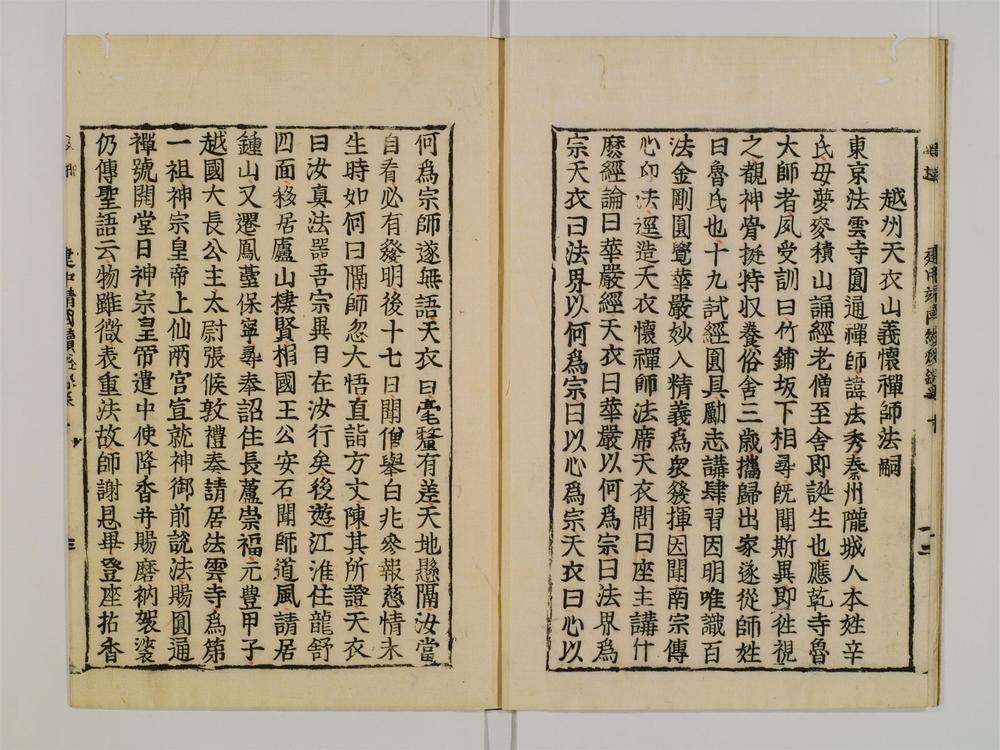 越州天衣山義懷禪師法嗣
東京法雲寺圓通禪師諱法秀秦州隴城人本姓辛
氏母夢麥積山誦經老僧至舍即誕生也應乾寺魯
大師者夙受訓曰竹鋪坂下相尋既聞斯異即徃視
之覩神骨挺特収養俗舍三歲攜歸出家遂從師姓
曰魯氏也十九試經圓具勵志講肆習因明唯識百
法金剛圓覺華嚴妙入精義爲衆發揮因聞南宗傳
心印法逕造天衣懷禪師法席天衣問曰座主講什
麽經論曰華嚴經天衣曰華嚴以何爲宗曰法界爲
宗天衣曰法界以何爲宗曰以心爲宗天衣曰心以
何爲宗師遂無語天衣曰毫釐有差天地懸隔汝當
自看必有發明後十七日聞僧舉白兆參報慈情未
生時如何曰隔師忽大悟直詣方丈陳其所證天衣
曰汝真法噐吾宗異日在汝行矣後遊江淮住龍舒
四面移居廬山棲賢相國王公安石聞師道風請居
鍾山又遷鳳臺保寧尋奉詔住長蘆崇福元豊甲子
越國大長公主太尉張候敦禮奏請居法雲寺爲第
一祖神宗皇帝上仙兩宫宣就神御前說法賜圓通
禪號開堂日神宗皇帝遣中使降香并賜磨衲袈裟
仍傳聖語云物雖微表重法故師謝恩畢登座拈香
建中靖國續
三